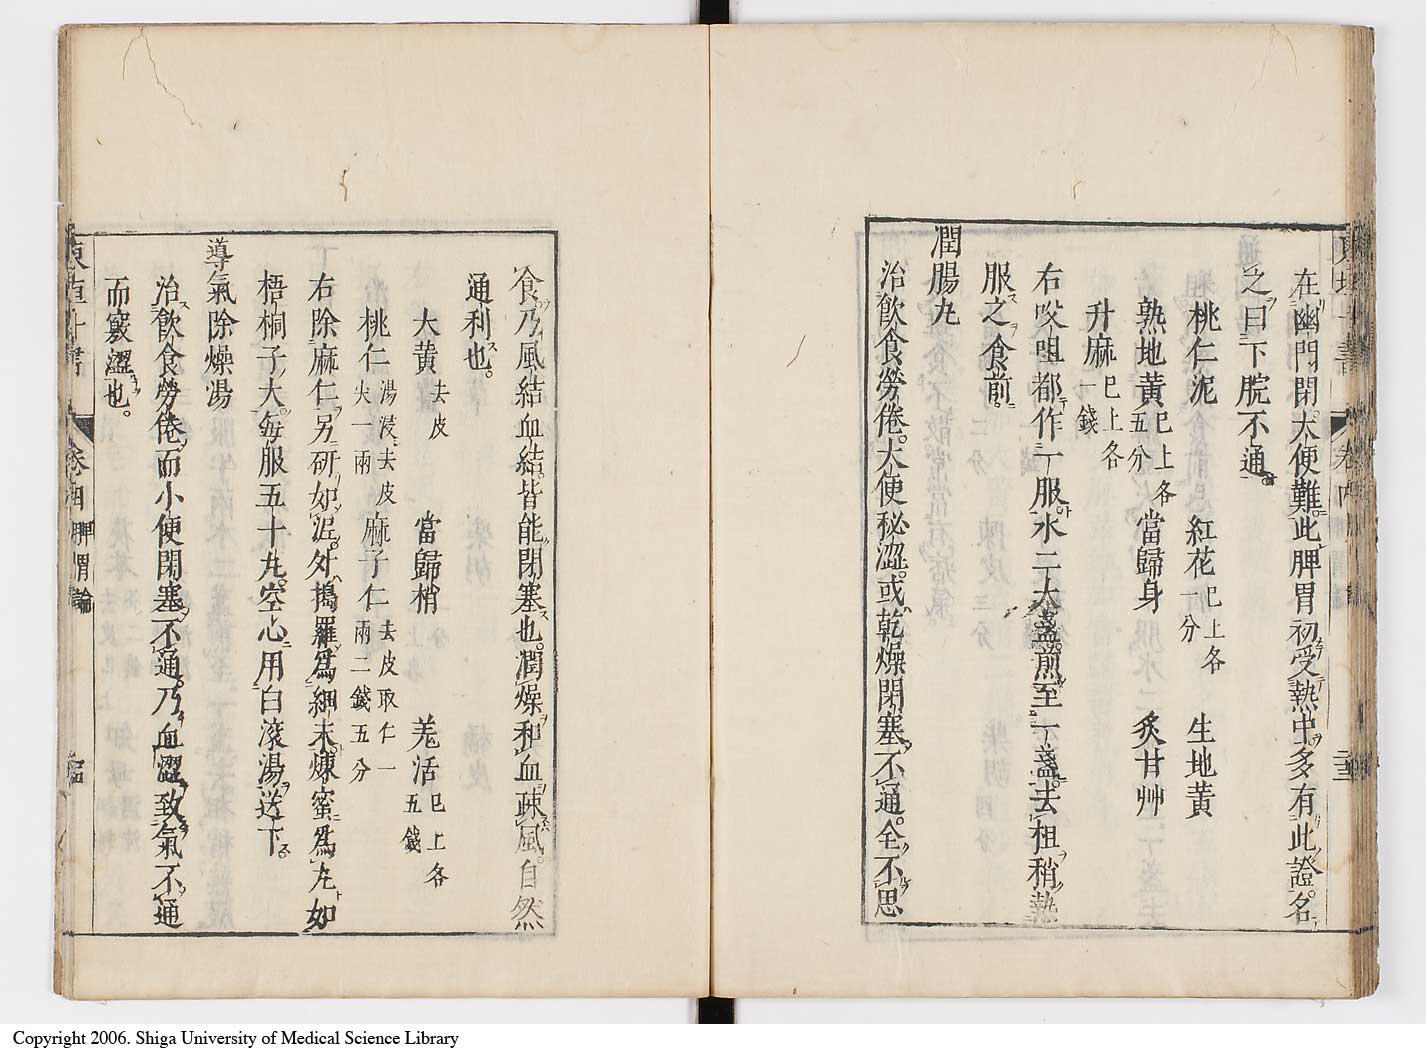 在幽門閉大便難此脾胃初受熱中多有此證名
之曰下脘不通
桃仁泥 紅花 已上各一分 生地黃
熟地黃 已上各五分 當歸身 炙甘艸
升麻 已上各一錢
右㕮咀都作一服水二大盞煎至一盞去柤稍熱
服之食前
潤腸丸
治飲食勞倦大便秘澀或乾燥閉塞不通全不思
食乃風結血結皆能閉塞也潤燥和血疎風自然
通利也
大黃 去皮 當歸梢 羌活 已上各五錢
桃仁 湯浸去皮尖一兩 麻子仁 去皮取仁一兩二錢五分
右除麻仁另研如泥外搗羅爲細末煉蜜爲丸如
梧桐子大每服五十丸空心用白滚湯送下
導氣除燥湯
治飲食勞倦而小便閉塞不通乃血澀致氣不通
而竅澀也
東垣十書 卷四 脾胃論
Copyright 2006. Shiga University of Medical Science Library